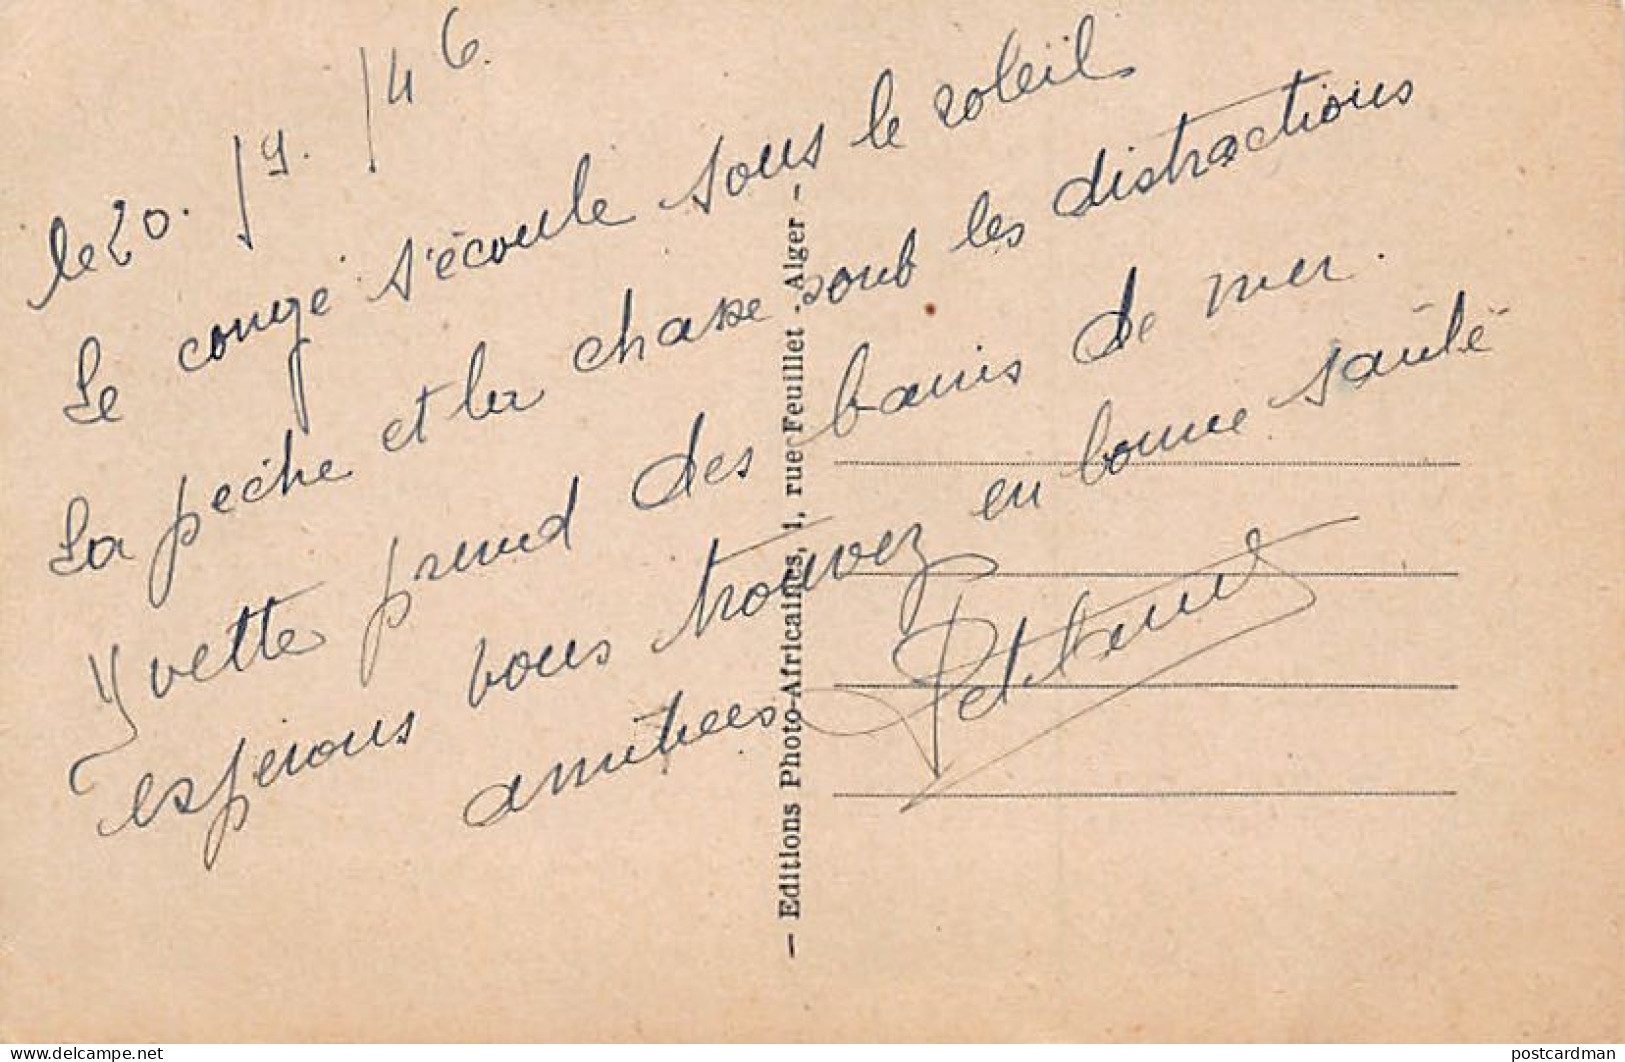 le 20. /9. /46.
Le congé s'écoule sous le soleil
La pêche et la chasse sont les distractions
Yvette prend des bains de mer.
espérons vous trouvez en bonne santé
amitiees
— Editions Photo-Africaines, 1, rue Feuillet - Alger —
postcardman